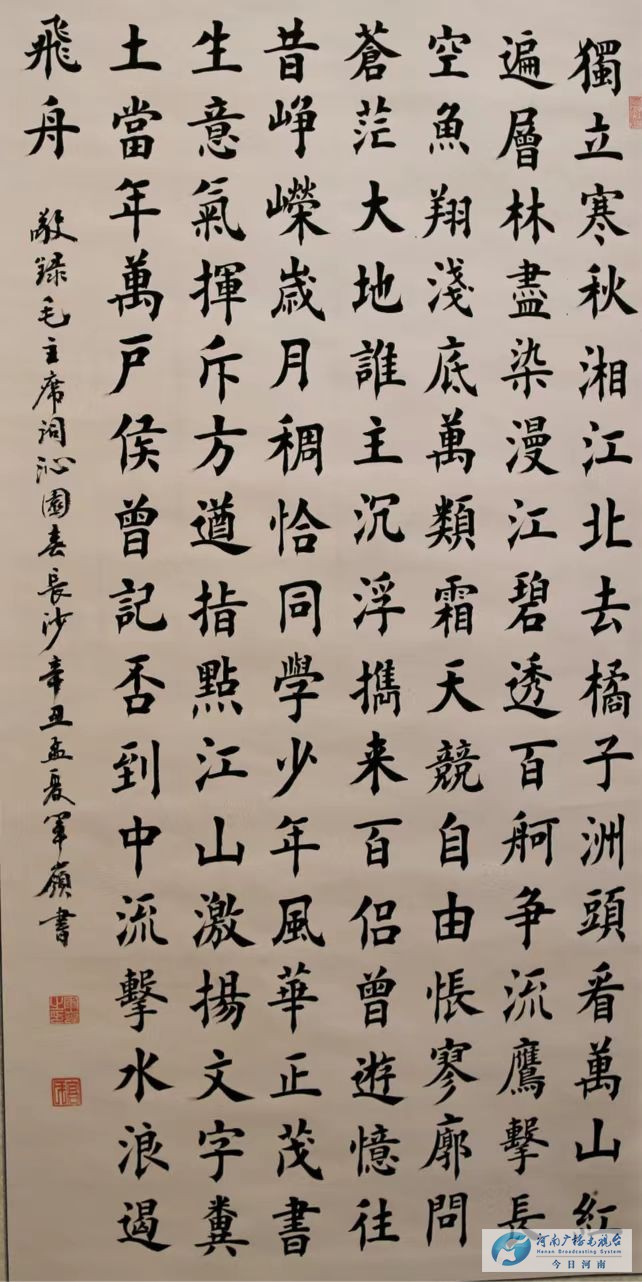 獨立寒秋湘江北去橘子洲頭看萬山紅
遍層林盡染漫江碧透百舸争流鷹擊長
空魚翔淺底萬類霜天競自由悵寥廓問
蒼茫大地誰主沉浮攜来百侣曾遊憶往
昔崢嶸歲月稠恰同學少年風華正茂書
生意氣揮斥方遒指點江山激揚文字糞
土當年萬户侯曾記否到中流擊水浪遏
飛舟
敬録毛主席詞沁園春長沙辛丑孟夏軍嶺書
河南广播电视台
Henan Broadcasting System
今日河南